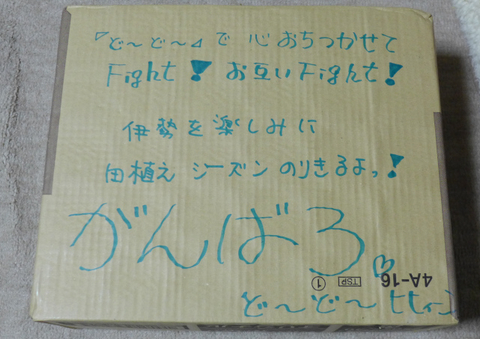 『ど〜ど〜』で 心おちつかせて
Fight! お互いFight!
伊勢を楽しみに
田植え シーズン のりきるよっ!
がんばろ
4A-16
TSP ①
ど〜ど〜